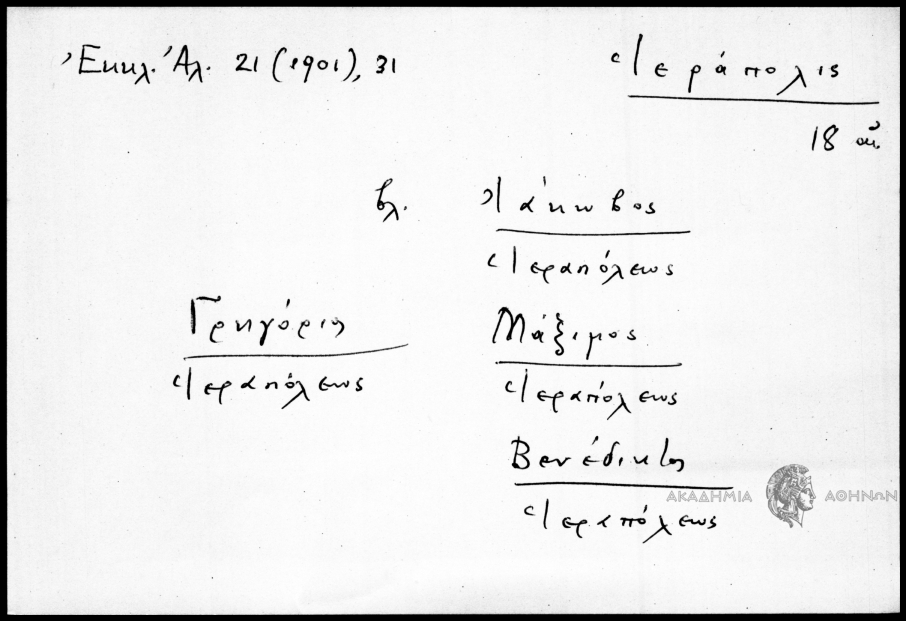 Ἐκκλ. Ἀλ. 21 (1901), 31
Ἱεράπολις
18 αἰ.
βλ.
Ἰάκωβος
Ἱεραπόλεως
Γρηγόριος
Ἱεραπόλεως
Μάξιμος
Ἱεραπόλεως
Βενέδικτος
Ἱεραπόλεως
ΑΚΑΔΗΜΙΑ ΑΘΗΝΩΝ